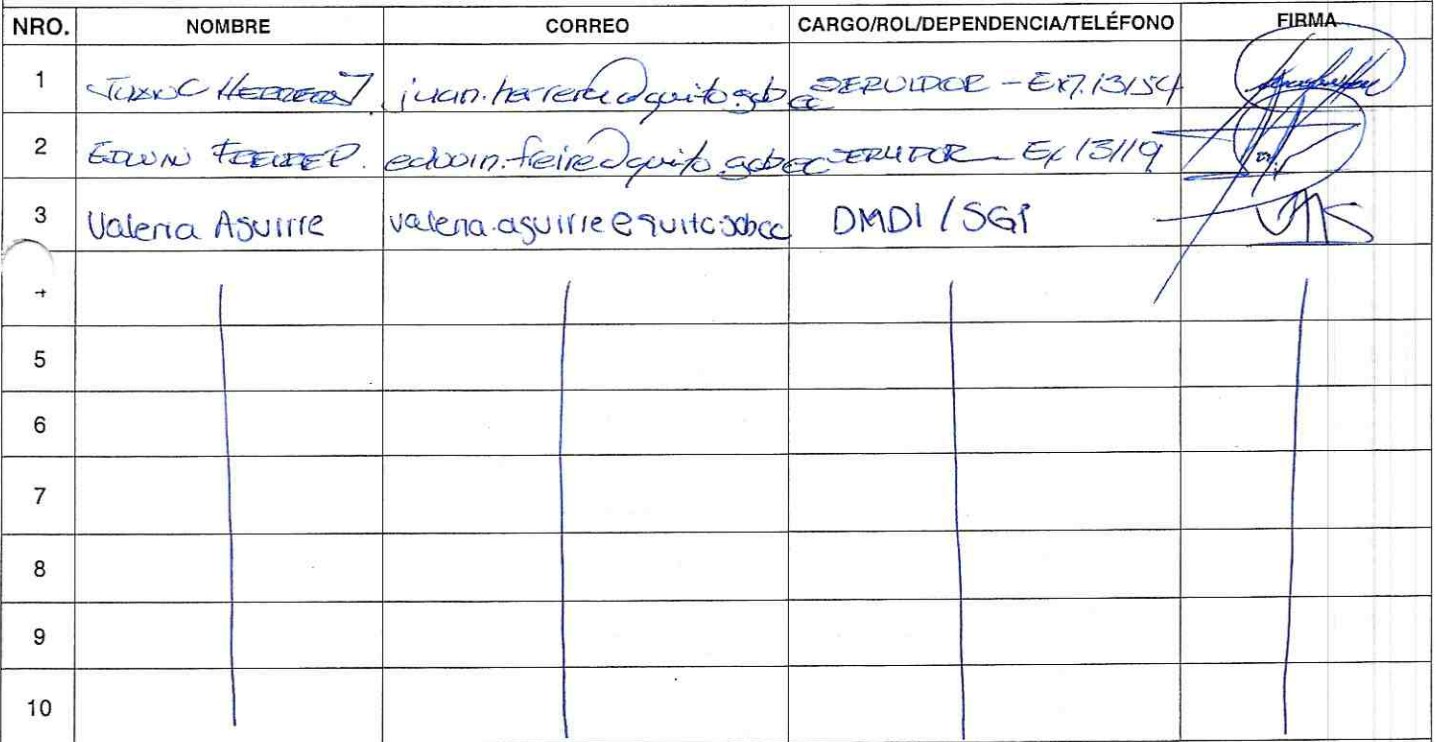 NRO. NOMBRE CORREO CARGO/ROL/DEPENDENCIA/TELÉFONO FIRMA
1 JUAN C HERRERA J juan.herrera@quito.gob.ec SERVIDOR - EXT. 13154
2 EDWIN FREIRE P. edwin.freire@quito.gob.ec SERVIDOR - Ex 13119
3 Valeria Aguirre valeria.aguirre@quito.gob.ec DMDI / SGP
4
5
6
7
8
9
10